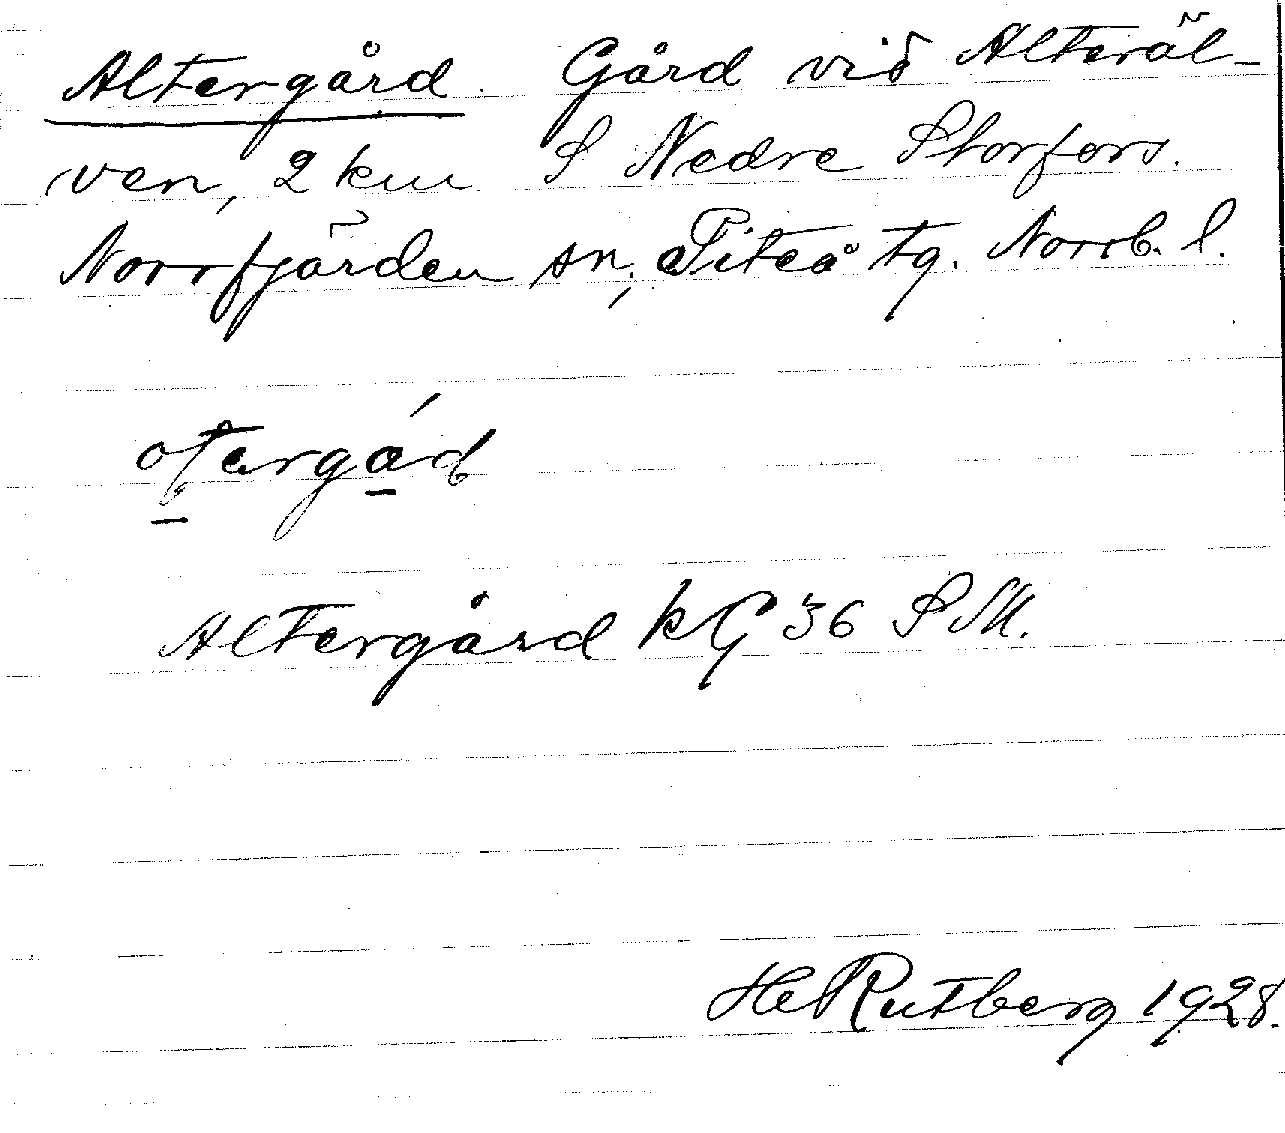 Altergård. Gård vid Alteräl-
ven, 2 km S Nedre Storfors.
Norrfjärden sn, Piteå tg. Norrb. l.
Altergård kG 36 S M.
HeRutberg 1928.